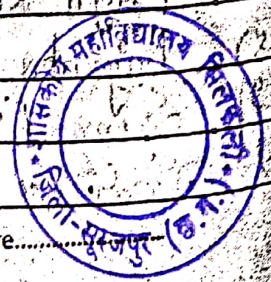 शासकीय महाविद्यालय सिलफिली
जिला-सूरजपुर (छ.ग.)